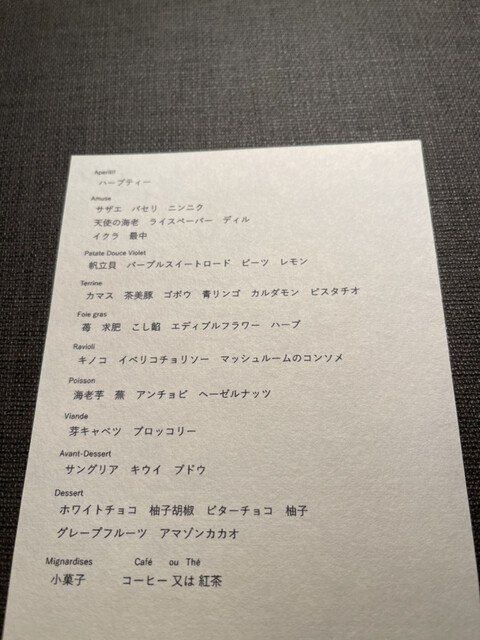 Aperitif
ハーブティー
Amuse
サザエ パセリ ニンニク
天使の海老 ライスペーパー ディル
イクラ 最中
Patate Douce Violet
帆立貝 パープルスイートロード ビーツ レモン
Terrine
カマス 茶美豚 ゴボウ 青リンゴ カルダモン ピスタチオ
Foie gras
苺 求肥 こし餡 エディブルフラワー ハーブ
Ravioli
キノコ イベリコチョリソー マッシュルームのコンソメ
Poisson
海老芋 蕪 アンチョビ ヘーゼルナッツ
Viande
芽キャベツ ブロッコリー
Avant-Dessert
サングリア キウイ ブドウ
Dessert
ホワイトチョコ 柚子胡椒 ビターチョコ 柚子
グレープフルーツ アマゾンカカオ
Mignardises Café ou Thé
小菓子 コーヒー 又は 紅茶